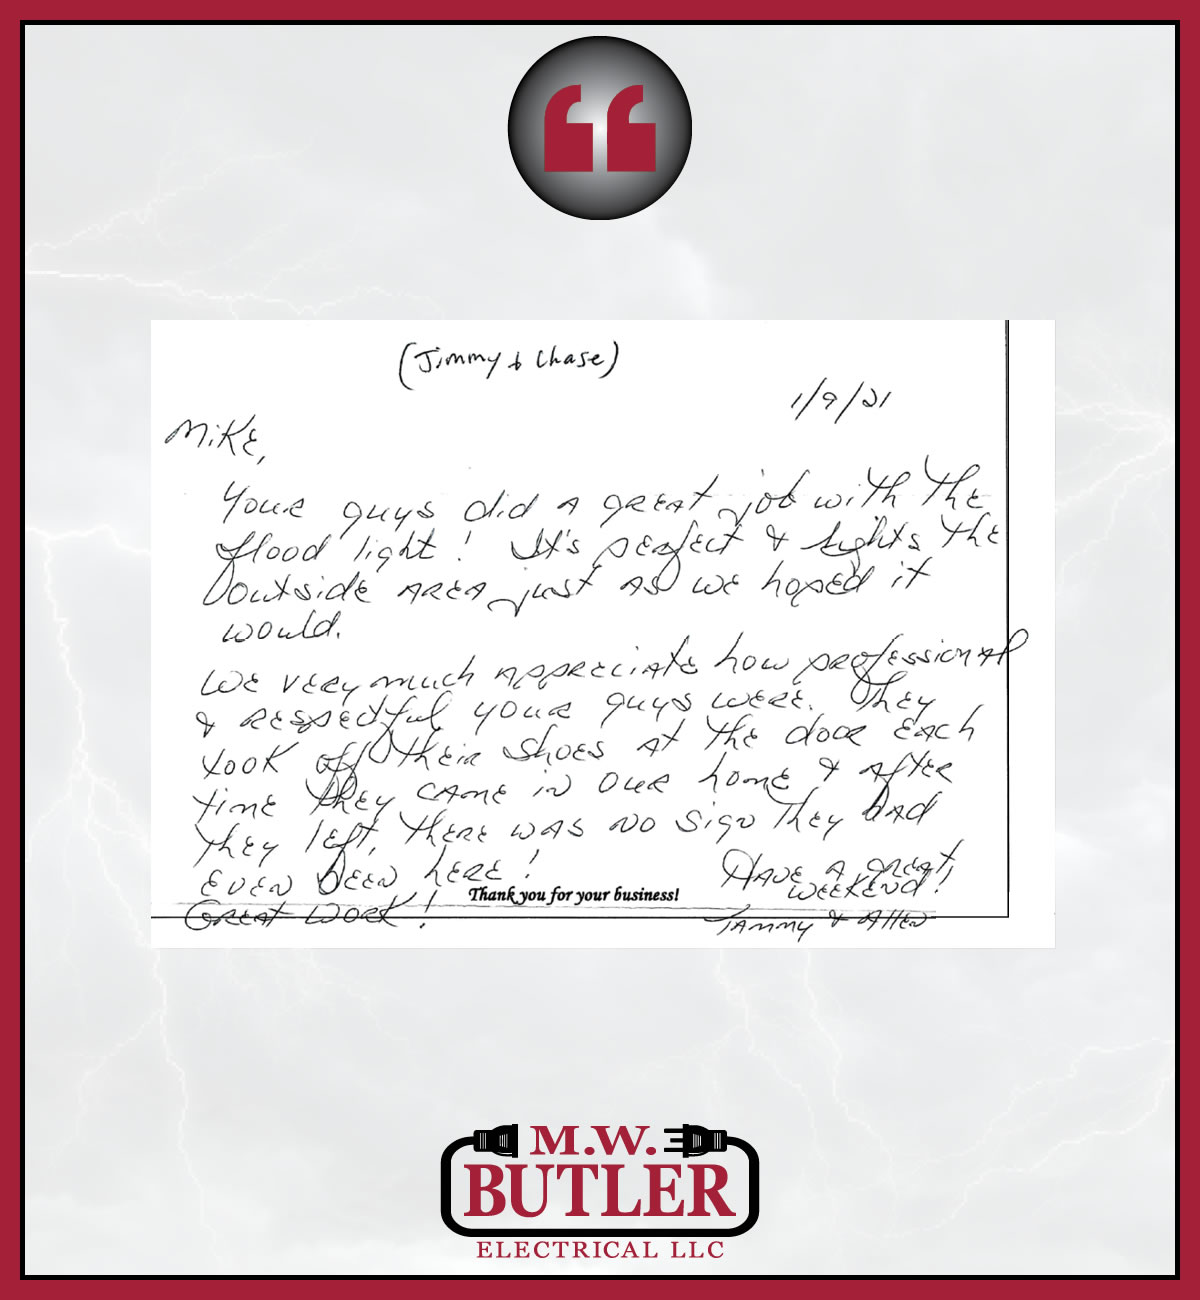 (Jimmy & Chase)
1/9/21
Mike,
Your guys did a great job with the
flood light! It's perfect & lights the
outside area just as we hoped it
would.
We very much appreciate how professional
& respectful your guys were. They
took off their shoes at the door each
time they came in our home & after
they left, there was no sign they had
even been here!
Have a great
weekend!
Thank you for your business!
Great work!
Tammy & Allen
M.W.
BUTLER
ELECTRICAL LLC